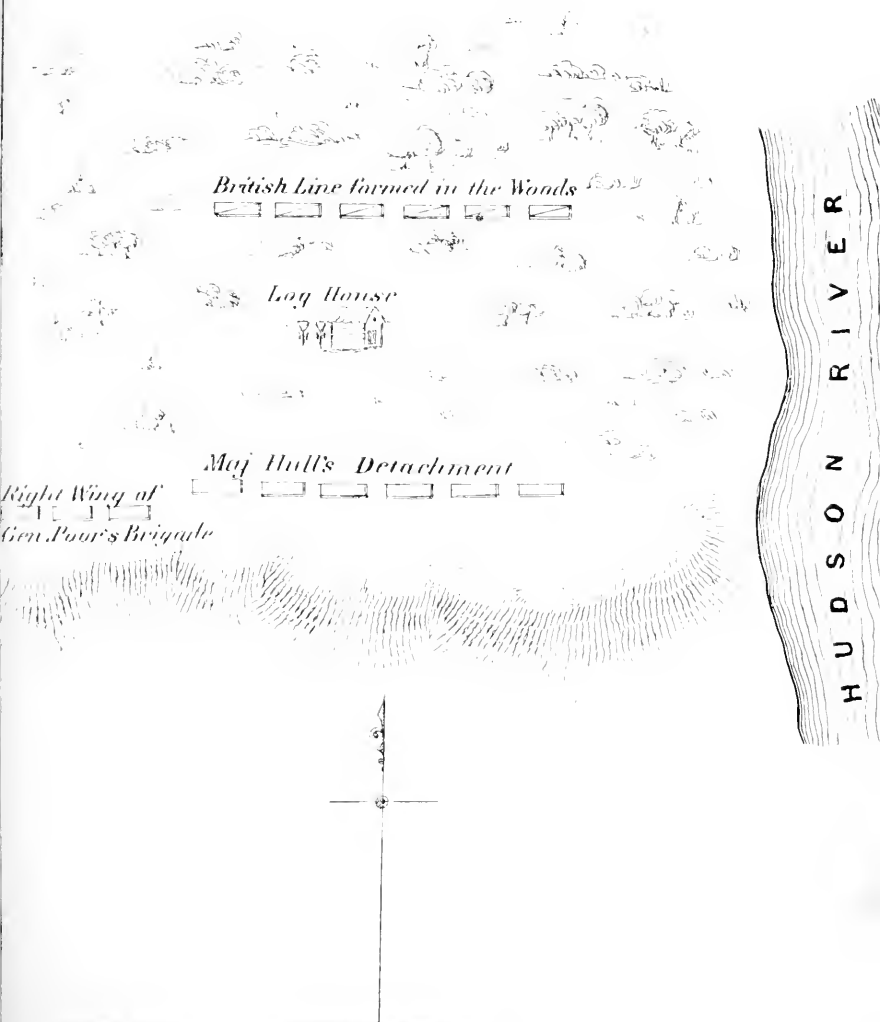 British Line formed in the Woods
Log House
Maj Hull's Detachment
Right Wing of
Gen. Poor's Brigade
HUDSON RIVER